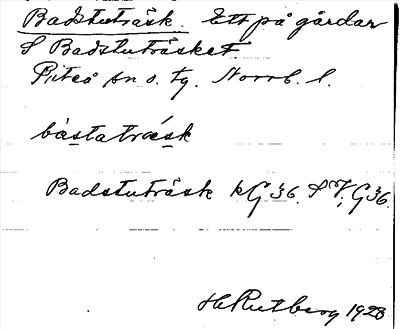 Badstuträsk. Ett på gårdar
S Badstuträsket
Piteå sn o. tg. Norrb. l.
båstatræsk
Badstuträsk kG36. SV; G36.
H. Rutberg 1928